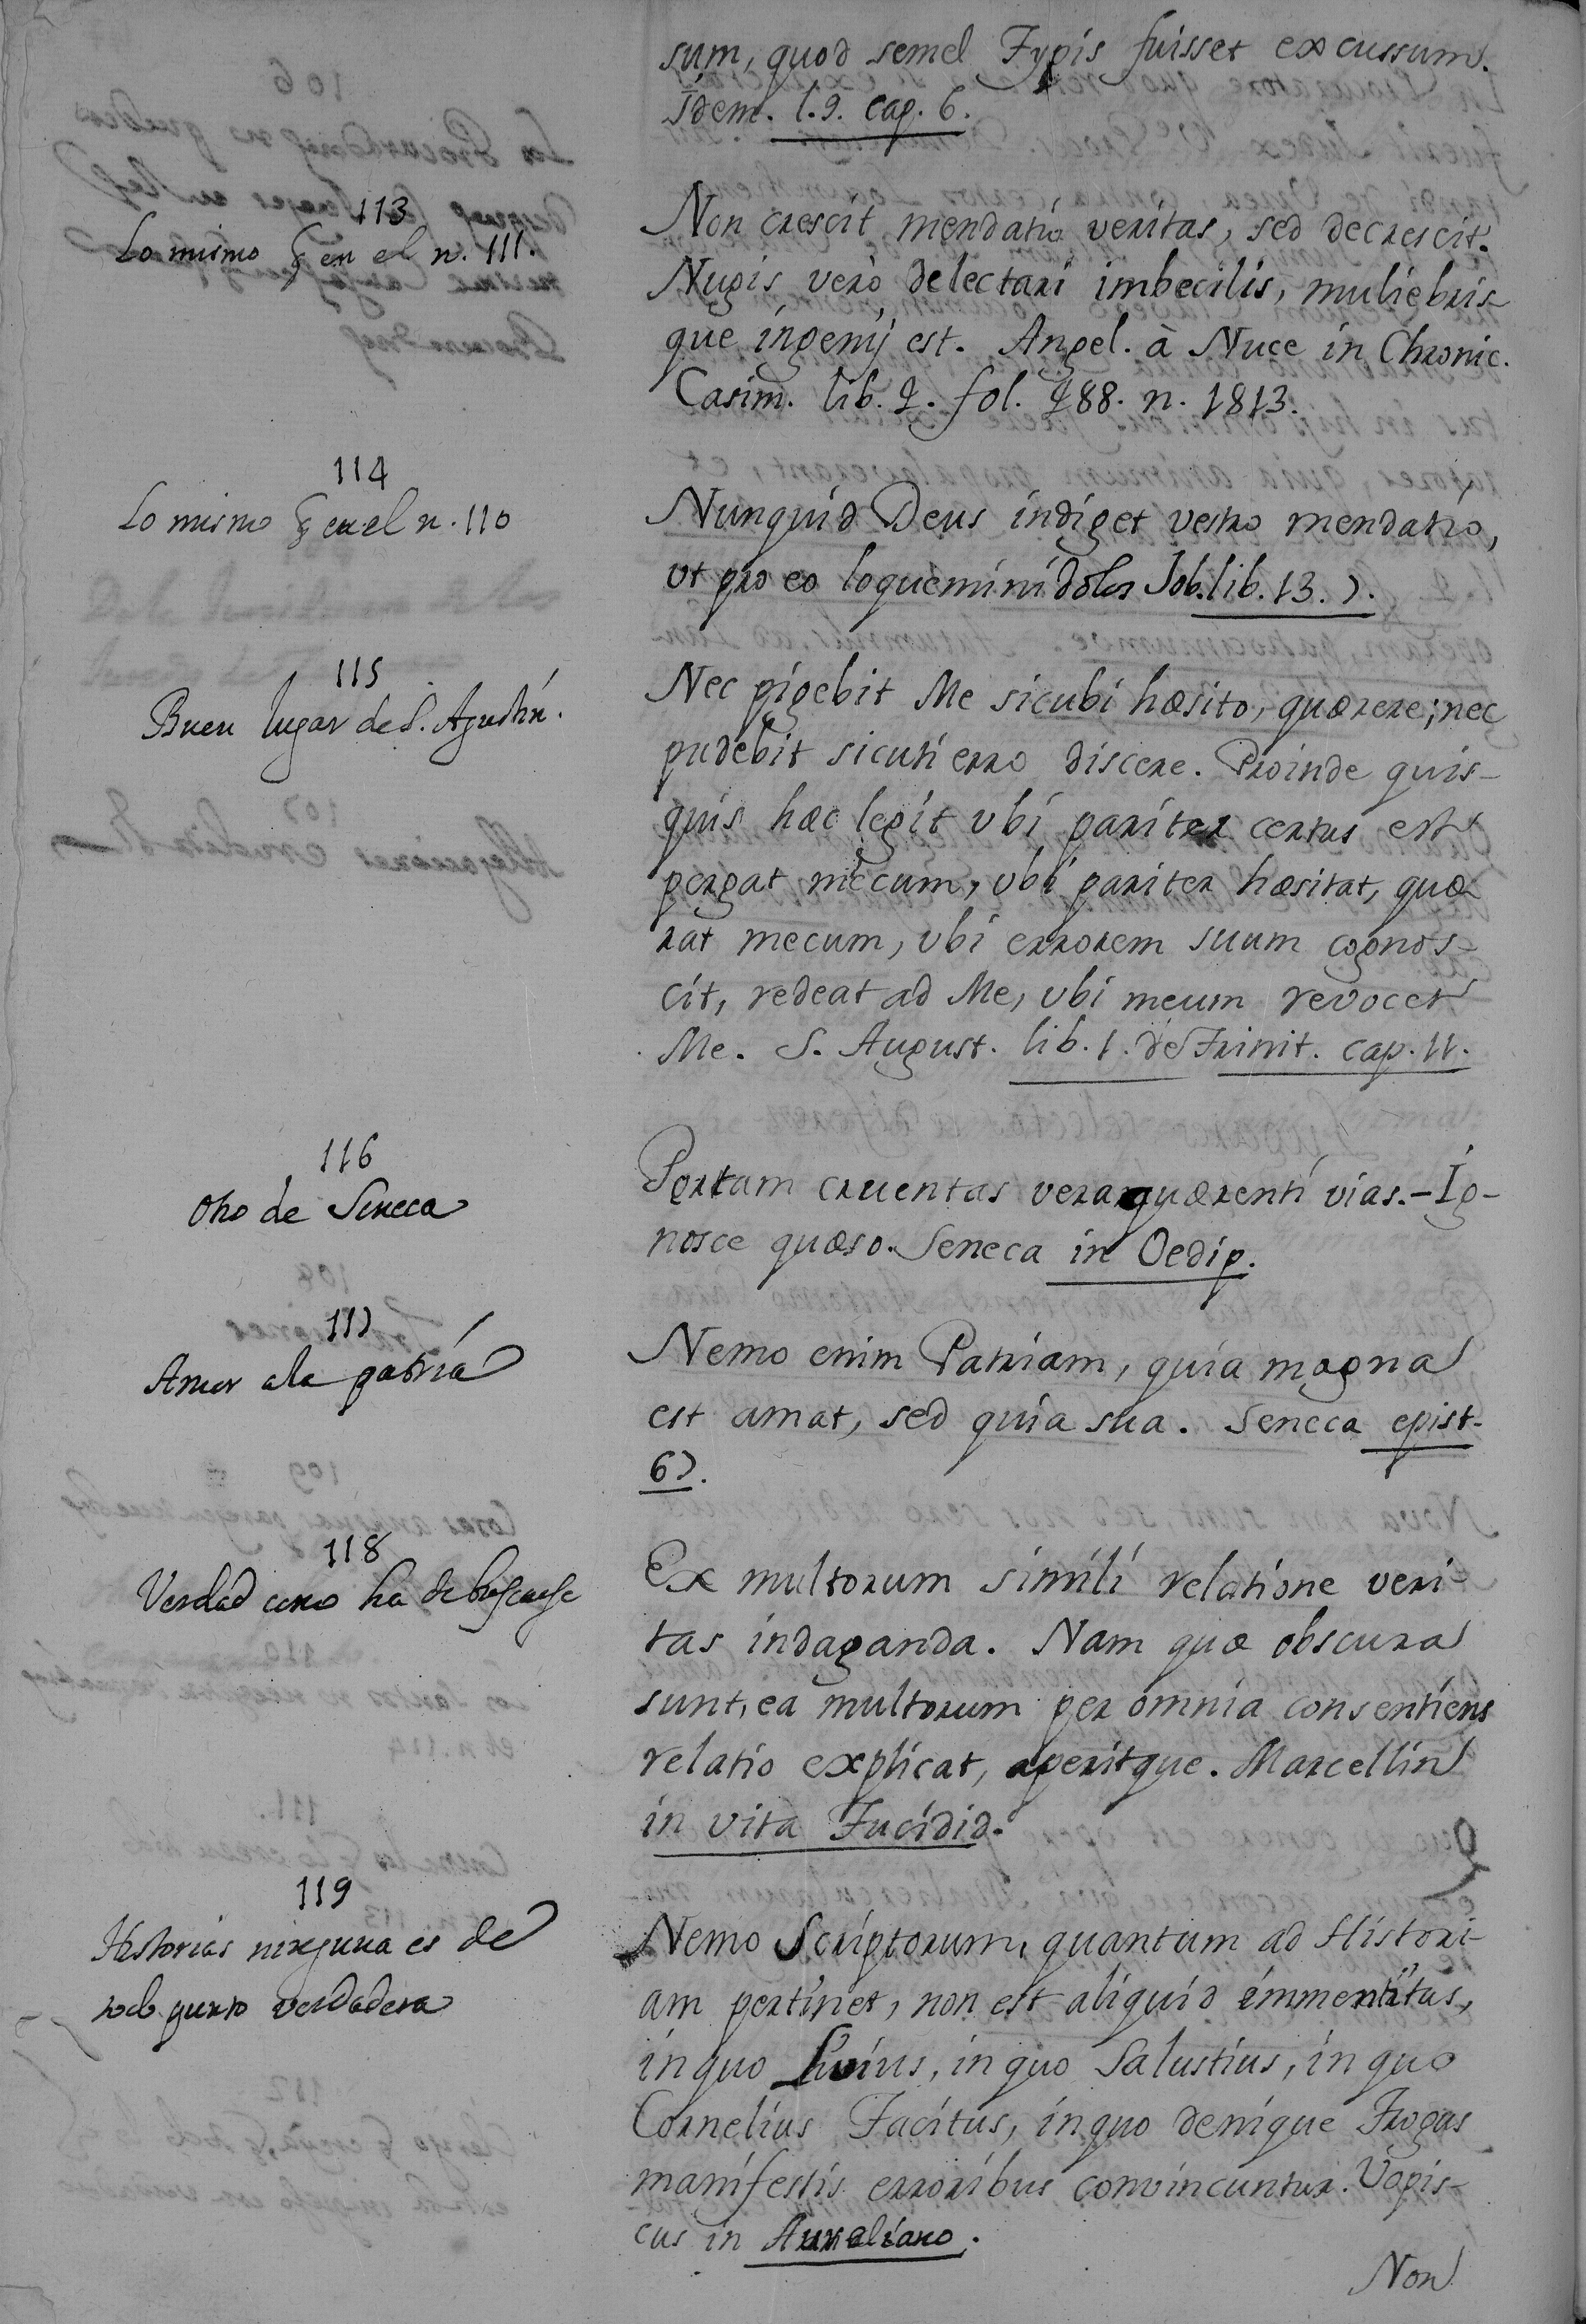 sum, quod semel Typis fuisset excussum.
Idem. l.9. cap. 6.
113
Lo mismo q̃ en el n. 111.
Non crescit mendatio veritas, sed decrescit.
Nugis verò delectari imbecilis, muliebris
que ingenij est. Angel. à Nuce in Chronic.
Casim. lib. 2. fol. 288. n. 1813.
114
Lo mismo q̃ en el n. 110
Nunquid Deus indiget vestro mendatio,
vt pro eo loquemini dolos Job. lib. 13. 7.
115
Buen lugar de S. Agustín.
Nec pigebit Me sicubi hæsito, quærere; nec
pudebit sicuti erro discere. Proinde quis-
quis hæc legit vbi pariter certus est
pergat mecum, vbi pariter hæsitat, quæ
rat mecum, vbi errorem suum cognos-
cit, redeat ad Me, vbi meum revocet
Me. S. August. lib. 1. de Trinit. cap. 11.
116
Otro de Seneca
Portam cruentas vera quærenti vias.-Ig-
nosce quæso. Seneca in Oedip.
117
Amor a la patria
Nemo enim Patriam, quia magna
est amat, sed quia sua. Seneca epist.
67.
118
Verdad como ha de buscarse
Ex multorum simili relatione veri-
tas indaganda. Nam quæ obscura
sunt, ea multorum per omnia consentiens
relatio explicat, aperitque. Marcellin
in vita Tucidid.
119
Historias ninguna es de
todo punto verdadera
Nemo Scriptorum, quantum ad Histori-
am pertinet, non est aliquid immentitus,
in quo Livius, in quo Salustius, in quo
Cornelius Tacitus, in quo denique Trogus
manifestis erroribus convincuntur. Vopis-
cus in Aureliano.
Non